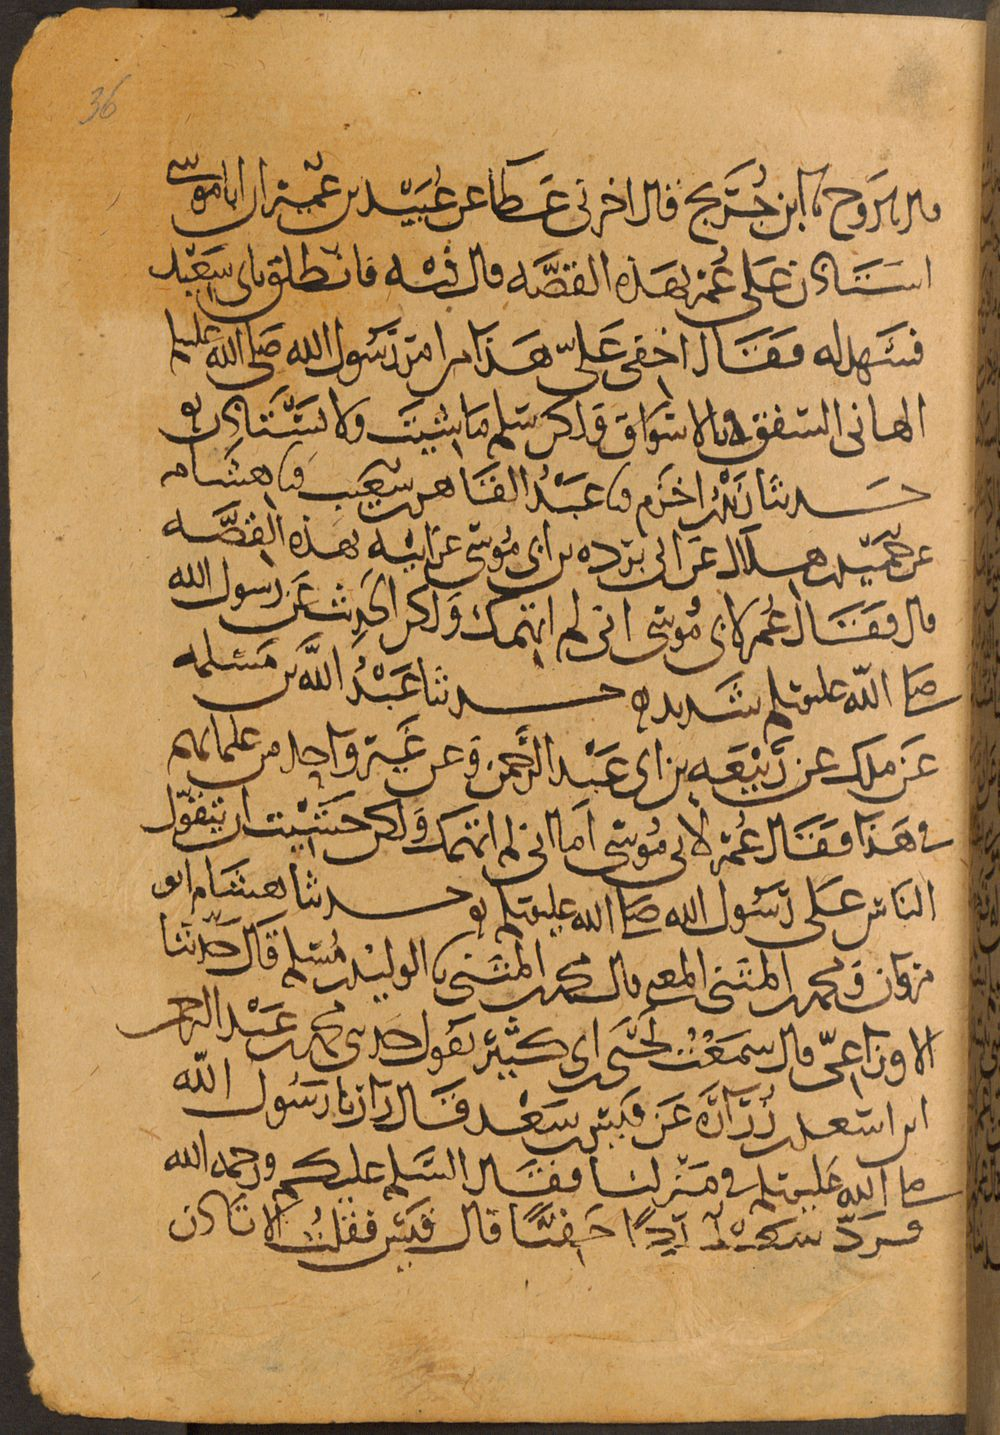 36
قال نا روح نا ابن جريج قال اخبرني عطا عن عبيد بن عمير ان ابا موسى
استاذن على عمر بهذه القصه قال فيه فانطلق بابي سعيد
فشهد له فقال اخفي علي هذا من امر رسول الله صلى الله عليه
الهاني السفق بالاسواق ولكن سلم ما شيت ولا تستاذن
حدثنا زيد بن اخزم نا عبد القاهر بن شعيب نا هشام
عن حميد بن هلال عن ابي برده بن ابي موسى عن ابيه بهذه القصه
قال فقال عمر لابي موسى اني لم اتهمك ولكن الحديث عن رسول الله
صلى الله عليه وسلم شديد حدثنا عبد الله بن مسلمه
عن ملك عن ربيعه بن ابي عبد الرحمن وعن غير واحد من علمائهم
في هذا فقال عمر لابي موسى اما اني لم اتهمك ولكن خشيت ان يتقول
الناس على رسول الله صلى الله عليه وسلم حدثنا هشام ابو
مروان ومحمد بن المثنى المعنى قال محمد بن المثنى نا الوليد بن مسلم قال حدثنا
الاوزاعي قال سمعت يحيى بن ابي كثير يقول حدثني محمد بن عبد الرحمن
ابن اسعد بن زرارة عن قيس بن سعد قال زارنا رسول الله
صلى الله عليه وسلم في منزلنا فقال السلم عليكم ورحمه الله
فرد سعد ردا خفيا قال قيس فقلت الا تاذن